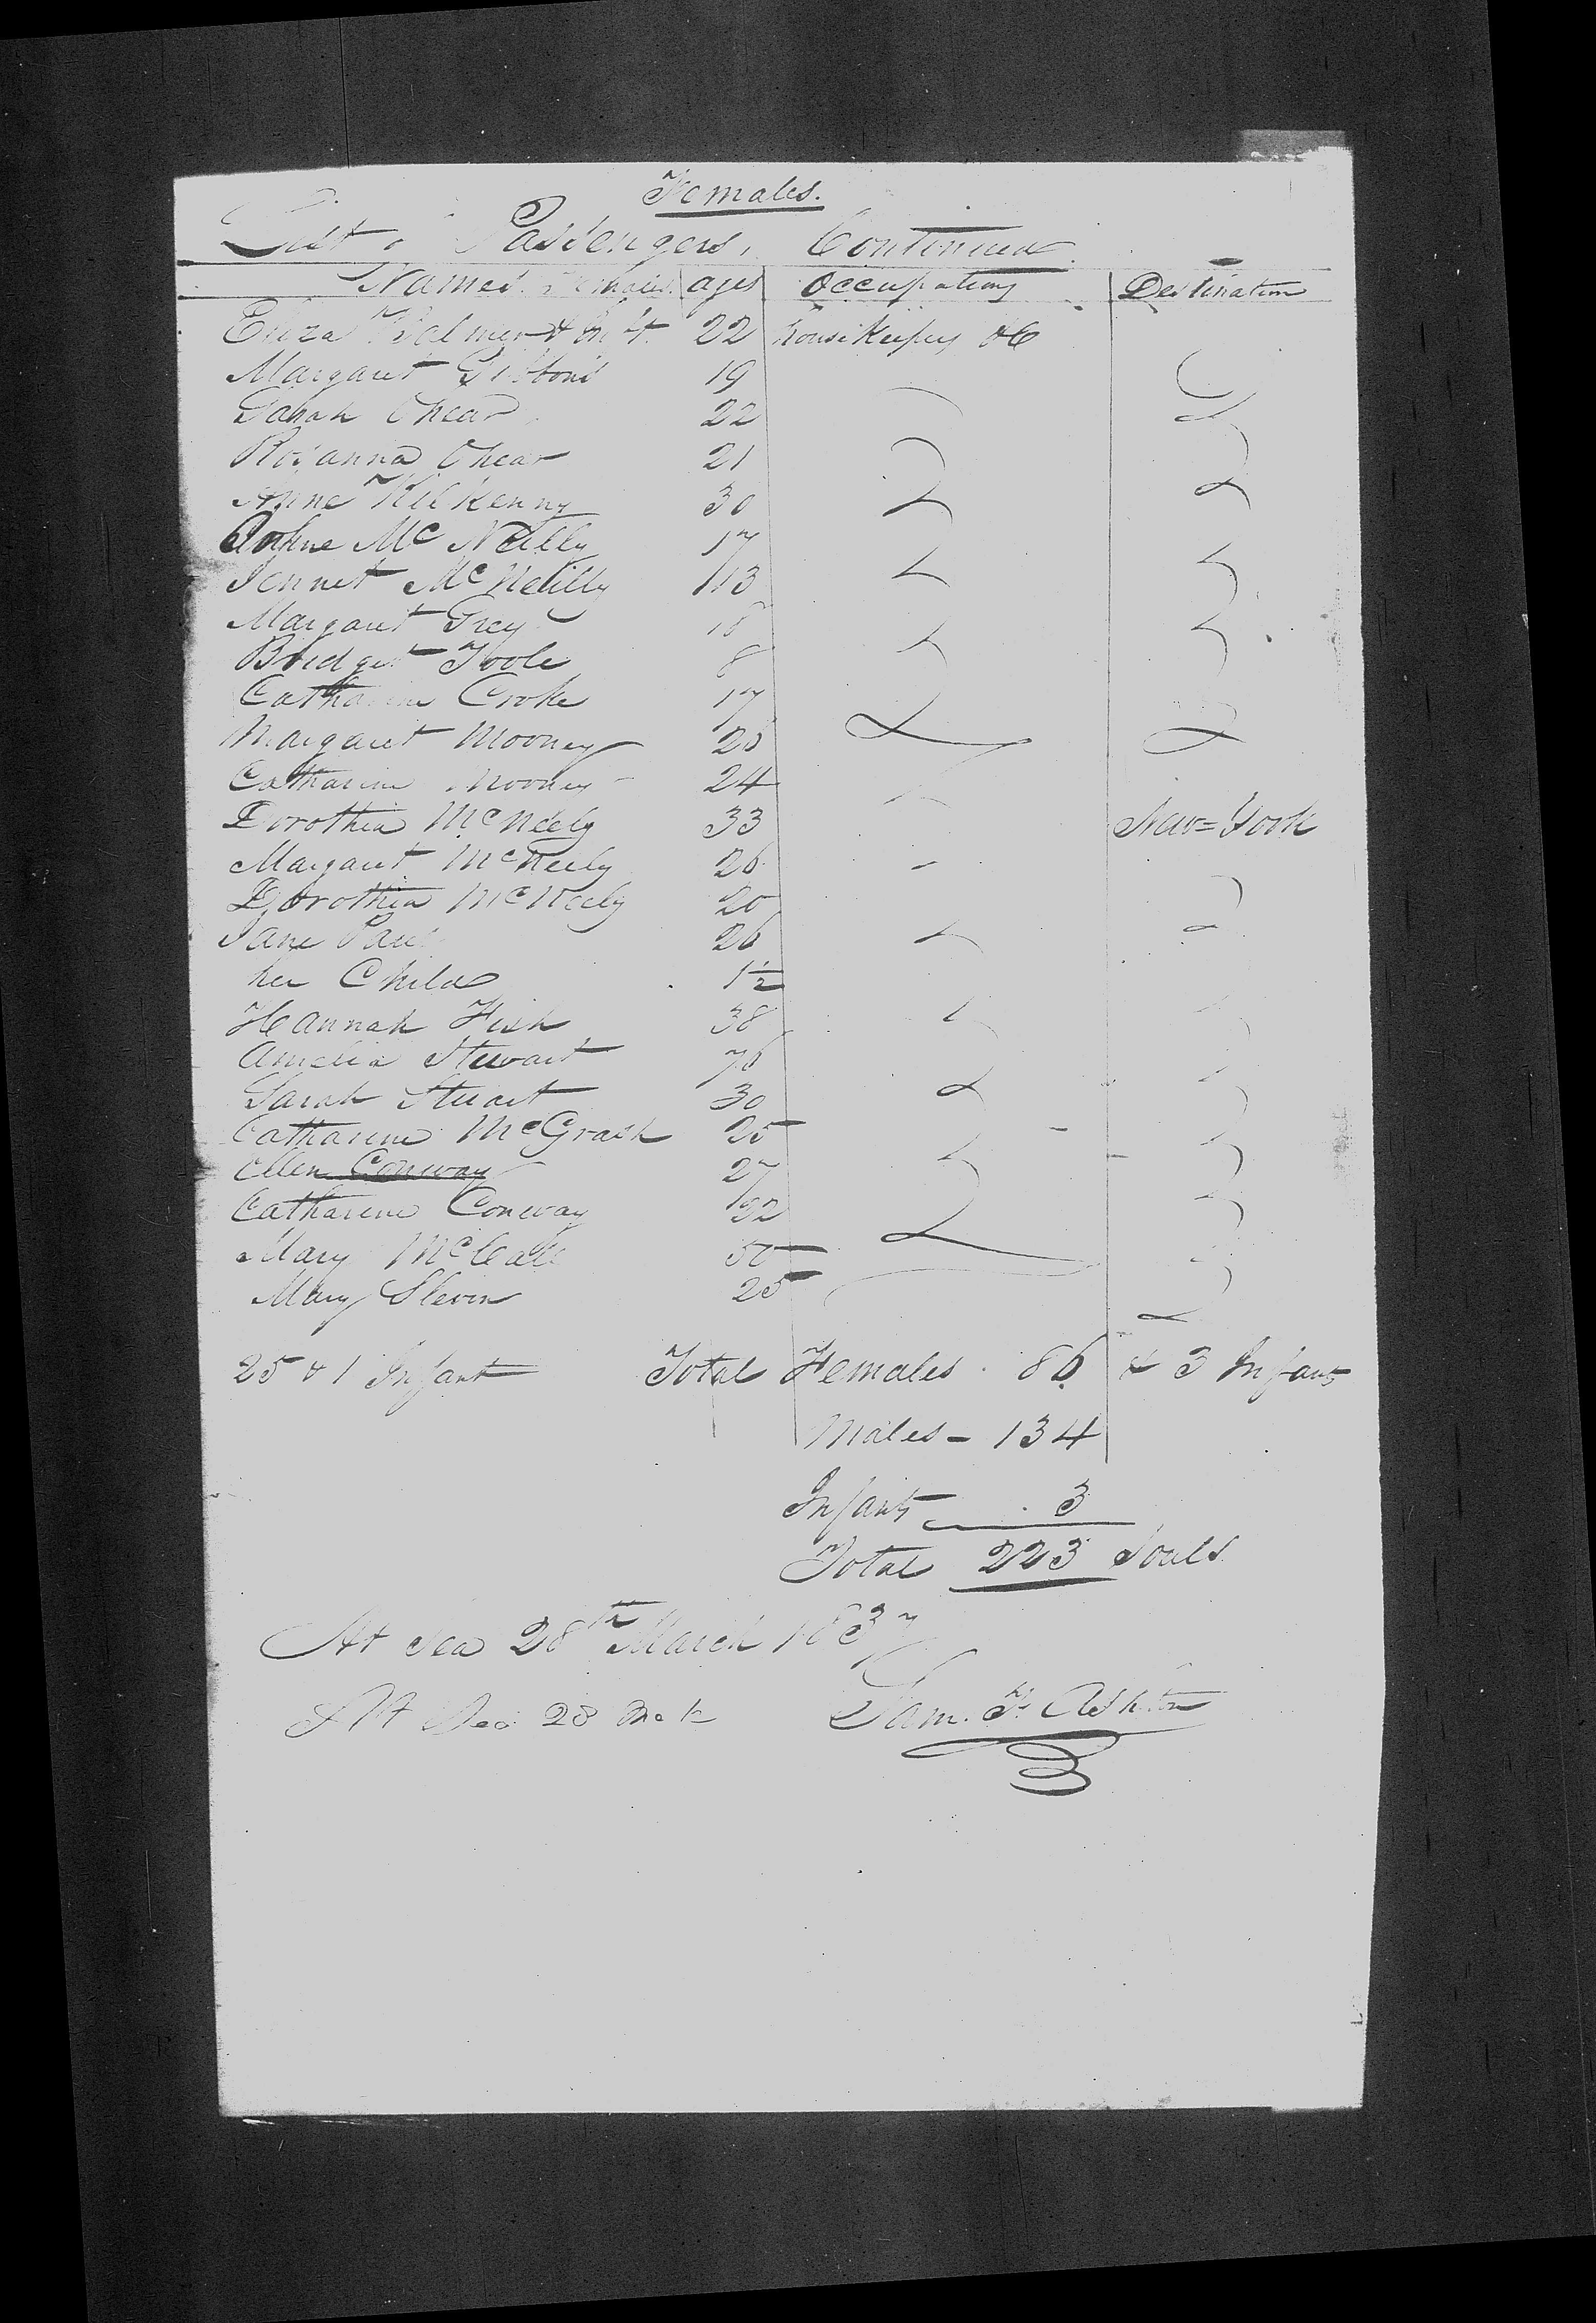 Females.
List of Passengers, Continued.
Names. Females. ages Occupations Destination
Eliza Palmer & Inft. 22 housekeepers &c
Margaret Gibbons 19
Sarah Ohear 22
Rosanna Ohear 21
Anne Kilkenny 30
Mc Neilly 17
Jennet McNeilly 13
Margaret Grey 18
Bridget Toole 8
Catharine Croke 17
Margaret Mooney 26
Catharine Mooney 24
Dorothea McNeely 33 New=York
Margaret McNeely 26
Dorothea McNeely 20
Jane Paul 26
her Child 1½
Hannah Fish 38
Amelia Stewart 76
Sarah Stuart 30
Catharine McGrath 25
Ellen Conway 27
Catharine Conway 32
Mary McCall 50
Mary Slevin 25
25 & 1 Infant Total Females. 86 & 3 Infants
Males - 134
Infants 3
Total 223 Souls
At Sea 28th March 1837
At Sea 28 Mch Sam. F. Ashton